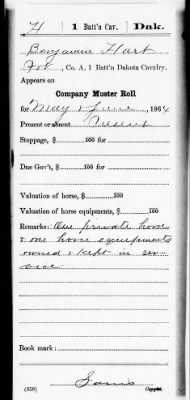 H 1 Batt'n Cav. Dak.
Benjamin Hart
Pvt., Co. A, 1 Batt'n Dakota Cavalry.
Appears on
Company Muster Roll
for May & June, 1864
Present or absent Present
Stoppage, $ 100 for
Due Gov't, $ 100 for
Valuation of horse, $ 100
Valuation of horse equipments, $ 100
Remarks: One private horse
& one horse equipments
owned & kept in ser-
vice
Book mark:
(858) Copyist.